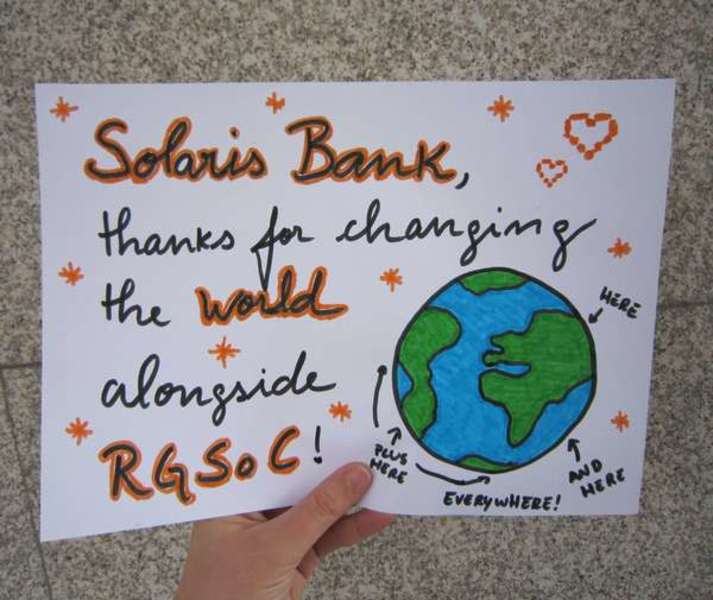 Solaris Bank,
thanks for changing
the world
alongside
RGSoC!
HERE
AND
HERE
EVERYWHERE!
PLUS
HERE